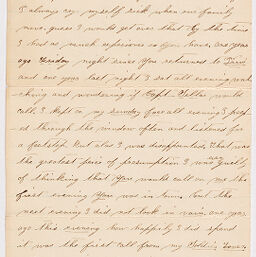 I always cry myself sick when our family
now. guess I would get over that if the time
I had as much experience as you have. one year
ago Tuesday night since you returned to
and one year last night I sat all evening watching
and wondering if Capt. would
call. I kept in my all evening &
through the window often and listened for
a footstep but alas I was disappointed. What was
the greatest piece of presumption I was guilty
of thinking that You would call on me the
first evening You was in town. but the
next evening I did not look in vain. one year
ago this evening how happily I did spend
it was the first call from my Soldier Lover.